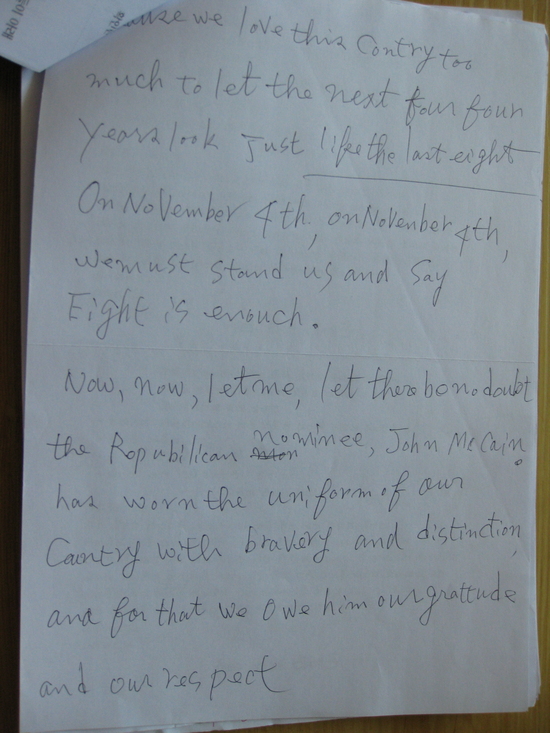 we love this Contry too
much to let the next four four
years look just like the last eight
On November 4th, on November 4th,
we must stand us and say
Eight is enouch.
Now, now, let me, let there be no doubt
the Ropubilican nominee, John McCain.
has worn the uniform of our
Cantry with bravery and distinction,
and for that we owe him our grattude
and our respect